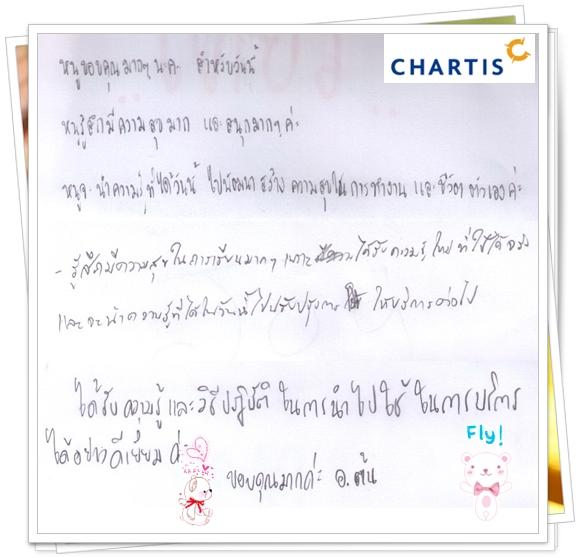 CHARTIS
หนูขอบคุณมากๆ นะคะ สำหรับวันนี้
หนูรู้สึกมีความสุขมาก และสนุกมากๆ ค่ะ
หนูจะนำความรู้ที่ได้วันนี้ ไปพัฒนา สร้าง ความสุขใน การทำงาน และ ชีวิต ตัวเองค่ะ
- รู้สึกมีความสุขในการเรียนมากๆ เพราะ ได้รับความรู้ใหม่ ที่ใช้ได้จริง
และจะนำความรู้ที่ได้ในวันนี้ไปปรับปรุงการ ให้บริการต่อไป
ได้รับความรู้และวิธีปฏิบัติ ในการนำไปใช้ ในการบริการ
ได้อย่างดีเยี่ยม ค่ะ
Fly!
ขอบคุณมากค่ะ อ.ต้น